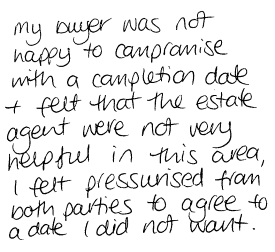 my buyer was not
happy to campromise
with a campletion date
+ felt that the estate
agent were not very
helpful in this area,
I felt pressurised from
both parties to agree to
a date I did not want.